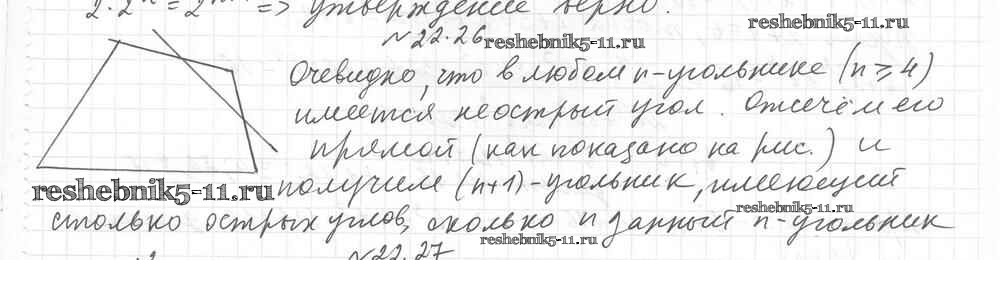 2·2ⁿ = 2ⁿ⁺¹ => утверждение верно.
№22.26
reshebnik5-11.ru
reshebnik5-11.ru
Очевидно, что в любом n-угольнике (n ≥ 4)
имеется неострый угол. Отсечём его
прямой (как показано на рис.) и
reshebnik5-11.ru
получим (n+1)-угольник, имеющий
reshebnik5-11.ru
столько острых углов, сколько и данный n-угольник
reshebnik5-11.ru
№22.27